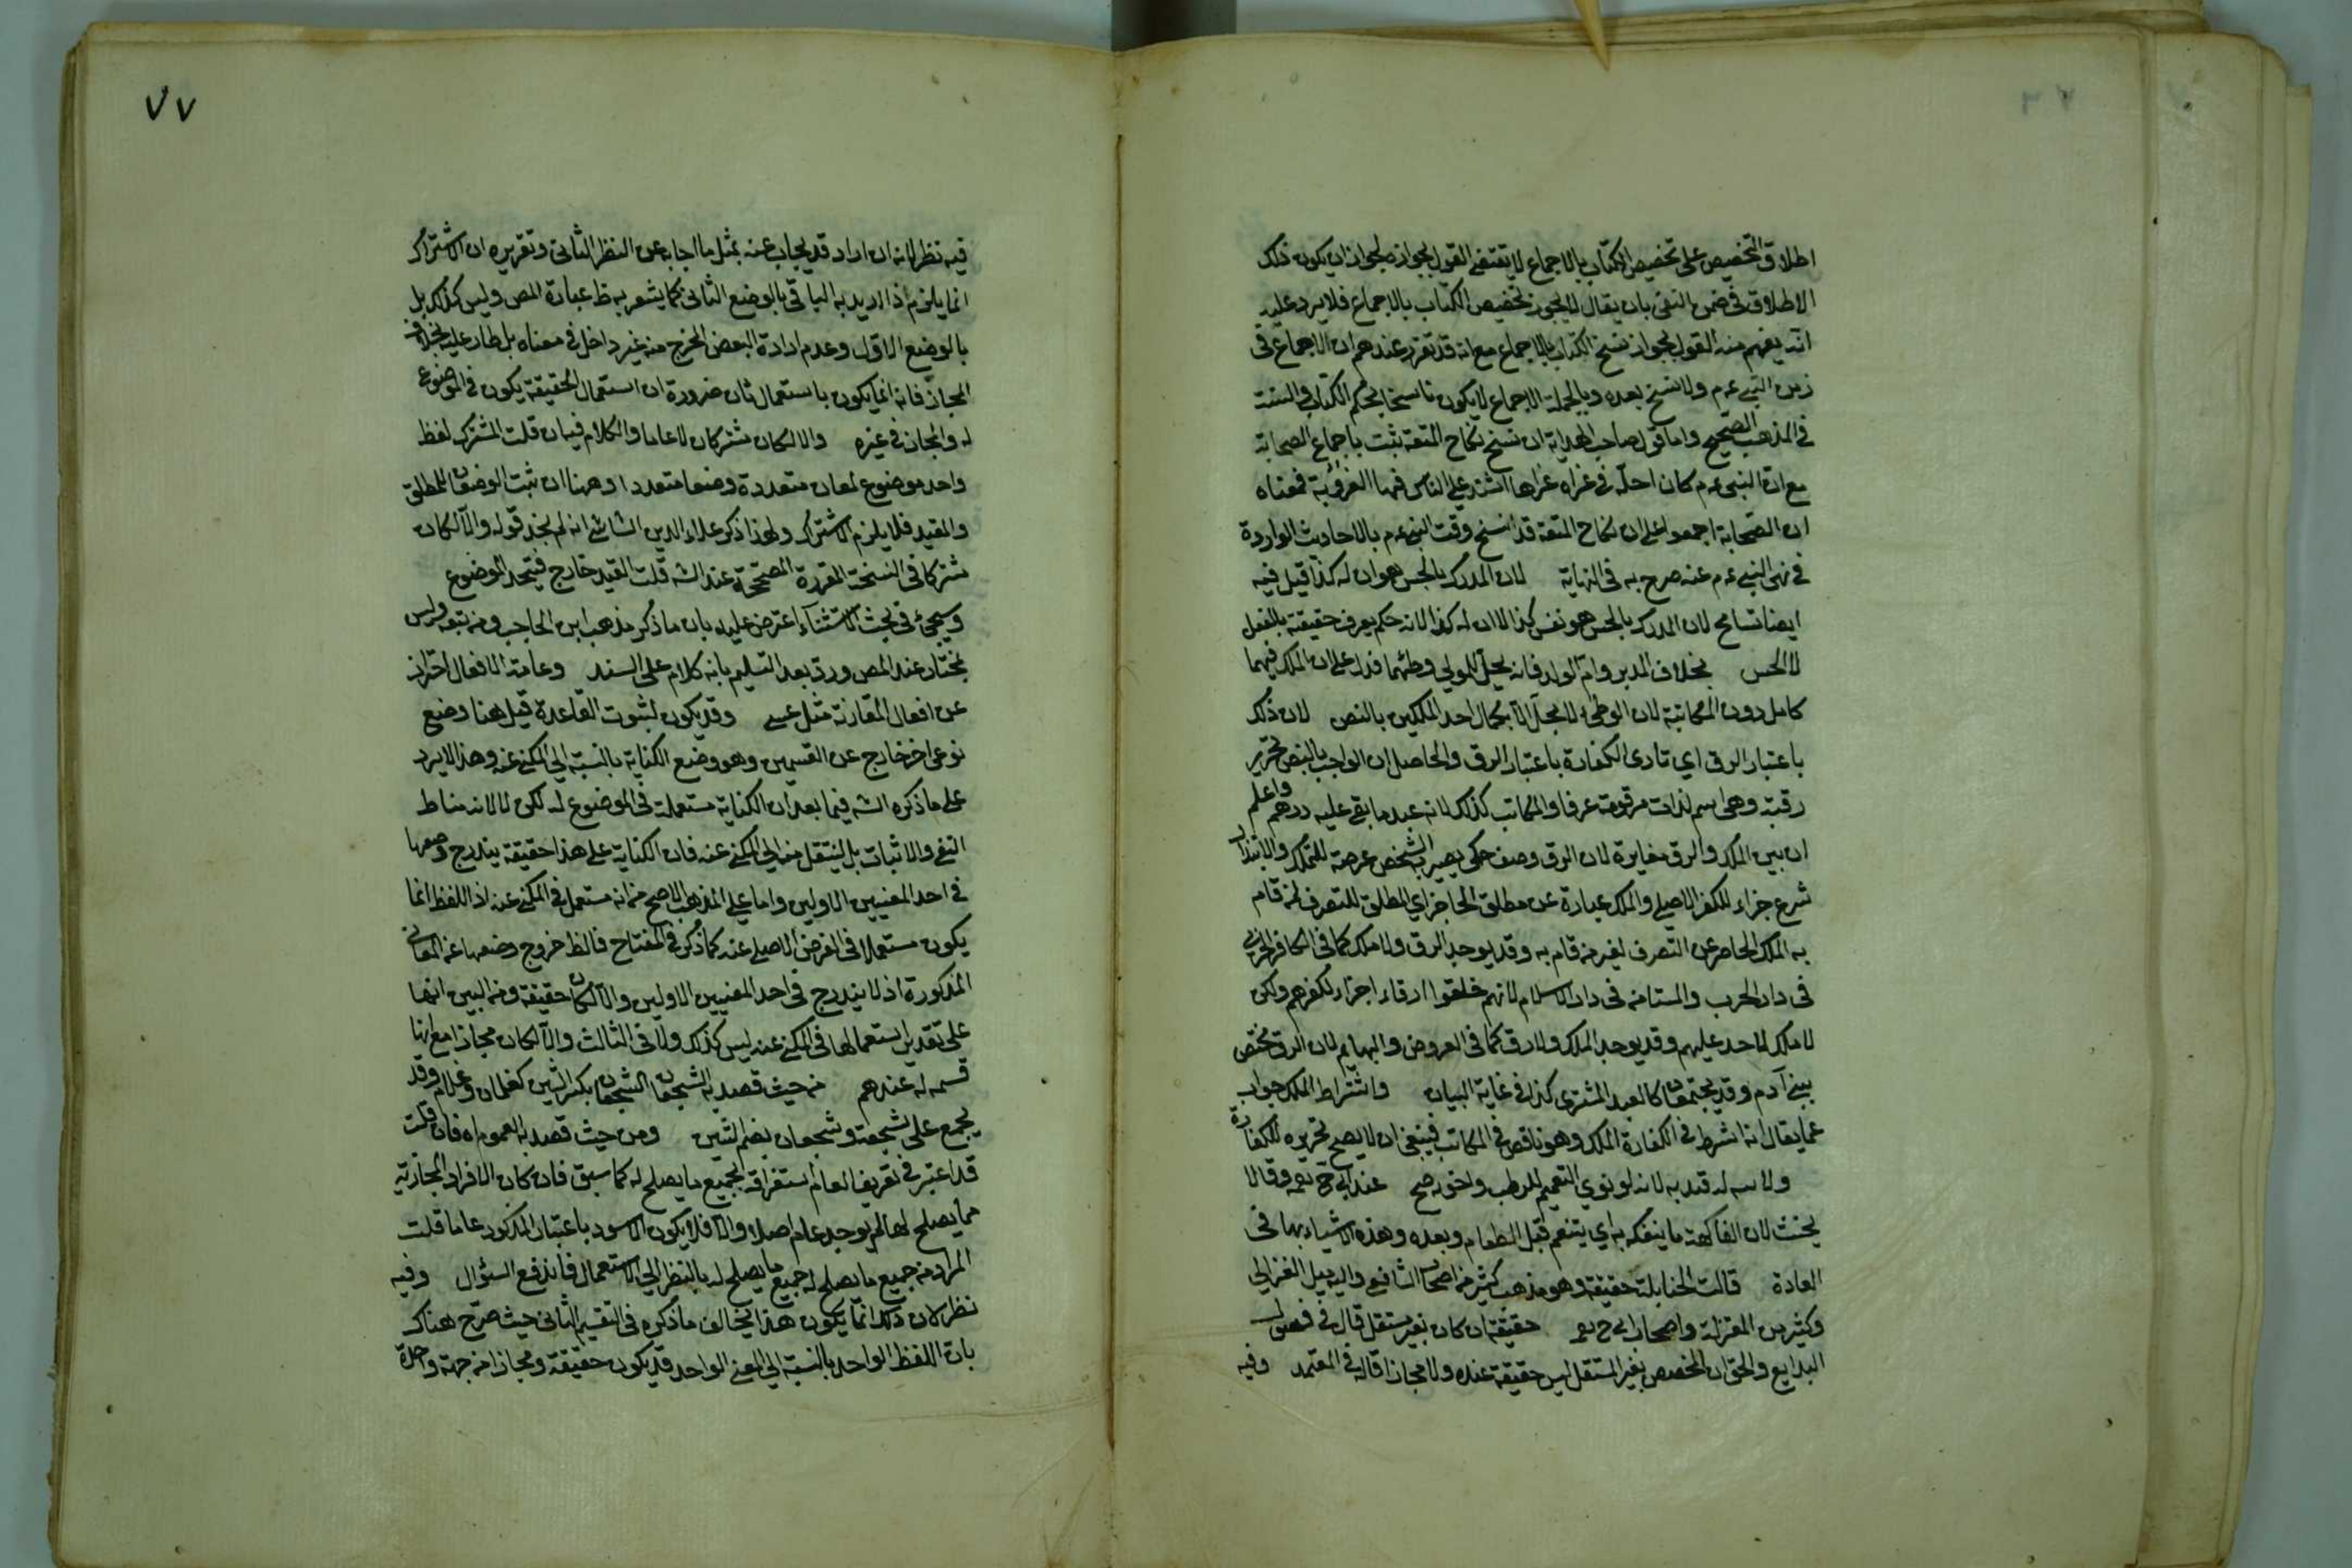 اطلاق التخصيص على تخصيص الكتاب بالاجماع لا يقتضي القول بجوازه لجواز ان يكون ذلك
الاطلاق في ضمن النفى بان يقال لا يجوز تخصيص الكتاب بالاجماع فلا يرد عليه
انه يفهم منه القول بجواز نسخ الكتاب بالاجماع مع انه قد تقرر عندهم ان لا اجماع في
زمن النبي عم ولا نسخ بعده وبالجملة الاجماع لا يكون ناسخا لحكم الكتاب والسنة
في المذهب الصحيح واما قول صاحب الهداية ان نسخ نكاح المتعة ثبت باجماع الصحابة
مع ان النبي عم كان احله في غزاه غزاها اشتد على الناس فيها العزوبة فمعناه
ان الصحابة اجمعوا على ان نكاح المتعة قد انسخ وقت النبي عم بالاحاديث الواردة
في نهى النبي عم عنه صرح به في النهاية لان المدرك بالحس هو ان له كذا قيل فيه
ايضا تسامح لان المدرك بالحس هو نفس كذا لا ان له كذا لانه حكم يعرف حقيقة بالعقل
لا الحس بخلاف المدبر وام الولد فانه يحل للمولي وطئهما فدل على ان الملك فيهما
كامل دون المكاتبة لان الوطئ لا يحل الا بكمال احد الملكين بالنص لان ذلك
باعتبار الرق اي تادى الكفارة باعتبار الرق والحاصل ان الواجب بالنص تحرير
رقبة وهي اسم لذات مرقوقة عرفا والمكاتب كذلك لانه عبد ما بقي عليه درهم واعلم
ان بين الملك والرق مغايرة لان الرق وصف حكمي يصير به الشخص عرضة للتملك والابتذال
شرع جزاء للكفر الاصلي والملك عبارة عن مطلق الحاجز اي المطلق للتصرف لمن قام
به الملك الحاجز عن التصرف لغير من قام به وقد يوجد الرق ولا ملك كما في الكافر الحربي
في دار الحرب والمستامن في دار الاسلام لانهم خلقوا ارقاء اجزاء لكفرهم ولكن
لا ملك لاحد عليهم وقد يوجد الملك ولا رق كما في العروض والبهايم لان الرق مختص
ببني آدم وقد يجتمعان كالعبد المشترى كذا في غاية البيان واشتراط الملك جواب
عما يقال انه اشرط في الكفارة الملك وهو ناقص في المكاتب فينبغي ان لا يصح تحريره للكفارة
قيد به لانه لو نوي التعميم للرطب ونحوه صح عند ابي ح وقالا
يحنث لان الفاكهة ما يتفكه به اي يتنعم قبل الطعام وبعده وهذه الاشياء بها في
العادة قالت الحنابلة حقيقة وهو مذهب كثير من اصحاب الشافعي واليه ميل الغزالي
وكثير من المعتزلة واصحاب ابي ح حقيقة ان كان بغير مستقل قال في فصول
البدايع والحق ان المخصص بغير المستقل ليس حقيقة عنده ولا مجازا قاله في المعتمد وفيه
٧٧
فيه نظر لانه ان اراد قد يجاب عنه بمثل ما اجاب عن النظر الثاني وتقريره ان الاشتراك
انما يلزم اذا اريد به الباقي بالوضع الثاني كما يشعر به ظ عبارة المص وليس كذلك بل
بالوضع الاول وعدم ارادة البعض المخرج منه غير داخل في معناه بل طار عليه بخلاف
المجاز فانه انما يكون باستعمال ثان ضرورة ان استعمال الحقيقة يكون في الموضوع
له والمجاز في غيره والا لكان مشتركا لا عاما والكلام فيه ان قلت المشترك لفظ
واحد موضوع لمعان متعددة وضعا متعددا وههنا ان ثبت الوضعان للمطلق
والمقيد فلا يلزم الاشتراك ولهذا ذكر علاء الدين الشاشي انه لم يجد قوله والا لكان
مشتركا في النسخة المقررة المصححة عند الشه قلت القيد خارج فيتحد الموضوع
وسيجئ في بحث الاستثناء اعترض عليه بان ما ذكر مذهب ابن الحاجب ومن تبعه وليس
بمختار عند المص ورد بعد التسليم بانه كلام على السند وعامة الافعال احتراز
عن افعال المقارنة مثل عسى وقد يكون لثبوت القاعدة قيل هنا وضع
نوعي اخر خارج عن القسمين وهو وضع الكناية بالنسبة الى المكني عنه وهذا لا يرد
على ما ذكره الشه فيما بعد ان الكناية مستعملة في الموضوع له لكن لا لانه مناط
النفي والاثبات بل لينتقل منه الى المكني عنه فان الكناية على هذا حقيقة يندرج وضعها
في احد المعنيين الاولين واما على المذهب الاصح من انه مستعمل في المكني عنه اذ اللفظ انما
يكون مستعملا في الغرض الاصلي عنه كما ذكر في المفتاح فالظ خروج وضعها عن المعاني
المذكورة اذ لا يندرج في احد المعنيين الاولين والا لكان حقيقة ومن البين انها
على تقدير استعمالها في المكني عنه ليس كذلك ولا في الثالث والا لكان مجازا مع انها
قسمه له عندهم من حيث قصد به الشجعان الشجعان بكسر الشين كغلمان وغلام وقد
يجمع على شجعة وشجعان بضم الشين ومن حيث قصد به العموم اه فان قلت
قد اعتبر في تعريف العام استغراقه لجميع ما يصلح له كما سبق فان كان الافراد المجازية
مما يصلح لها لم يوجد عام اصلا والا فلا يكون الاسود باعتبار المذكور عاما قلت
المراد من جميع ما يصلح له جميع ما يصلح له بالنظر الى الاستعمال فاندفع السؤال وفيه
نظر لان ذلك انما يكون هذا يخالف ما ذكره في التقسيم الثاني حيث صرح هناك
بان اللفظ الواحد بالنسبة الى المعني الواحد قد يكون حقيقة ومجازا من جهة واحدة